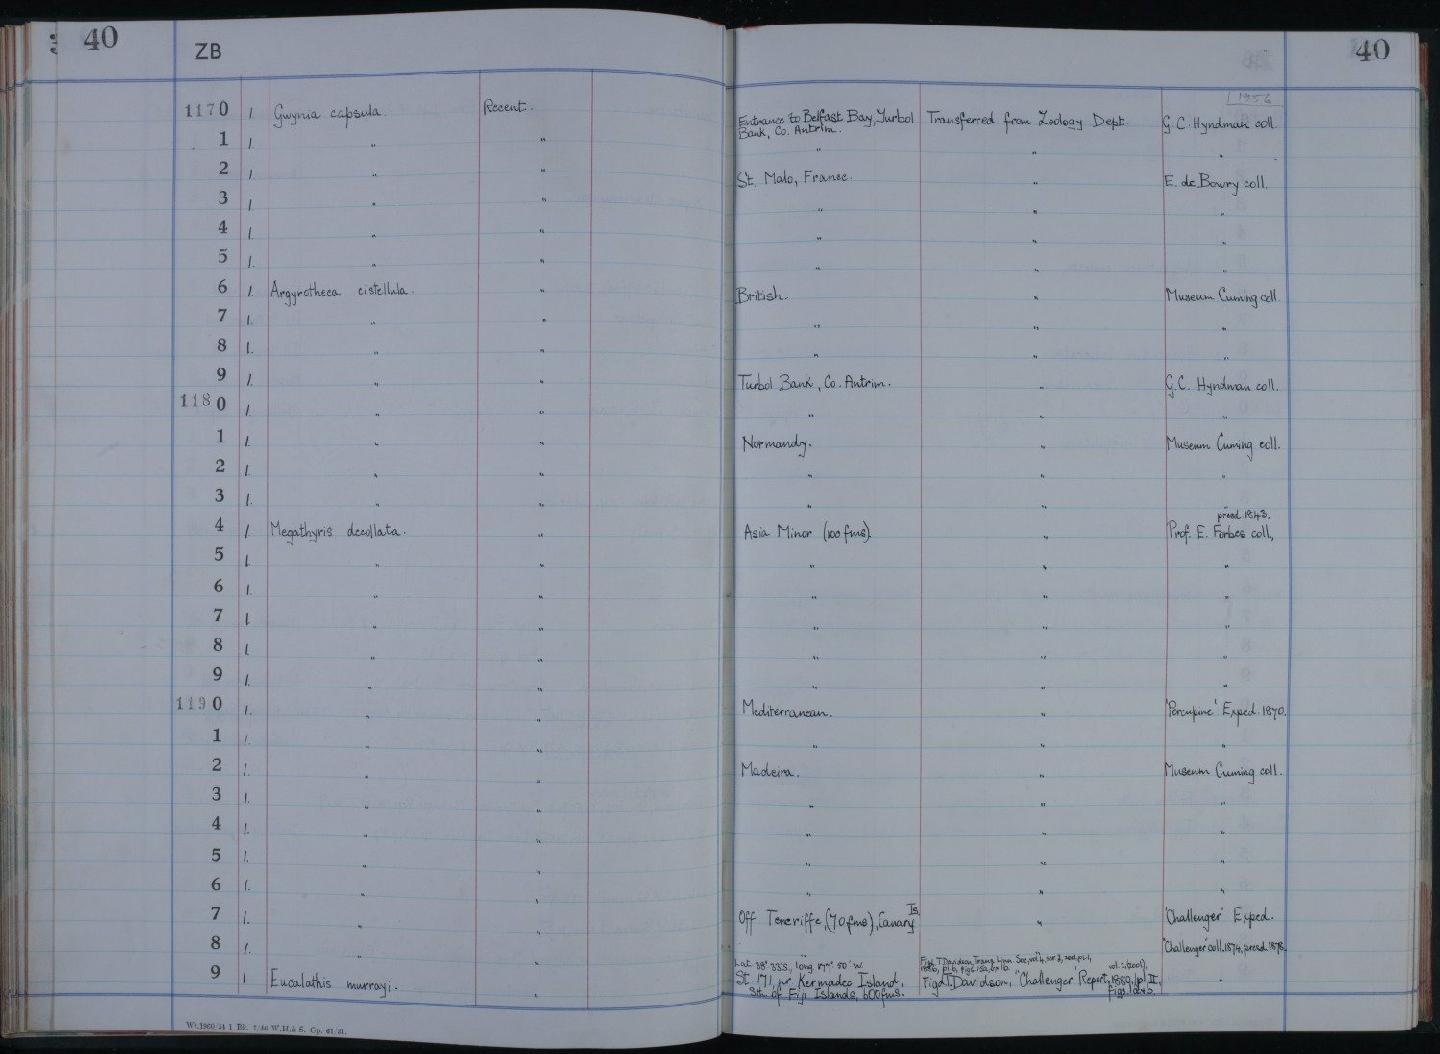 40
ZB
40
1956
1170 1. Gwynia capsula. Recent. Entrance to Belfast Bay, Turbol Transferred from Zoology Dept. G.C. Hyndman coll.
Bank, Co. Antrim.
1 1. " " " " "
2 1. " " St. Malo, France. " E. de Boury coll.
3 1. " " " " "
4 1. " " " " "
5 1. " " " "
6 1. Argyrotheca cistellula. " British. " Museum Cuming coll.
7 1. " " " " "
8 1. " " " " "
9 1. " " Turbol Bank, Co. Antrim. " G.C. Hyndman coll.
1180 1. " " " " "
1 1. " " Normandy. " Museum Cuming coll.
2 1. " " " " "
3 1. " " " " "
presd. 1843.
4 1. Megathyris decollata. " Asia Minor (100 fms). " Prof. E. Forbes coll,
5 1. " " " " "
6 1. " " " " "
7 1. " " " " "
8 1. " " " " "
9 1. " " " " "
1190 1. " " Mediterranean. " 'Porcupine' Exped. 1870.
1 1. " " " " "
2 1. " " Madeira. " Museum Cuming coll.
3 1. " " " " "
4 1. " " " " "
5 1. " " " " "
6 1. " " " " "
7 1. " " Off Teneriffe, (70 fms), Canary Is. " 'Challenger' Exped.
8 1. " " " " "Challenger" coll. 1874, presd. 1878.
Lat. 38° 33'S., long. 50' W. Figd. T. Davidson, Trans. Linn. Soc., vol. 4, ser. 2, zool. pt. 1,
9 1 Eucalathis murrayi. " St. 171, nr. Kermadec Island, Figd. T. Davidson, 'Challenger' Report, 1880, pl. II,
Sth. of Fiji Islands, 600 fms. figs.
Wt.1960/14 1 Bk. 7/46 W.H.& S. Gp. 61/51.